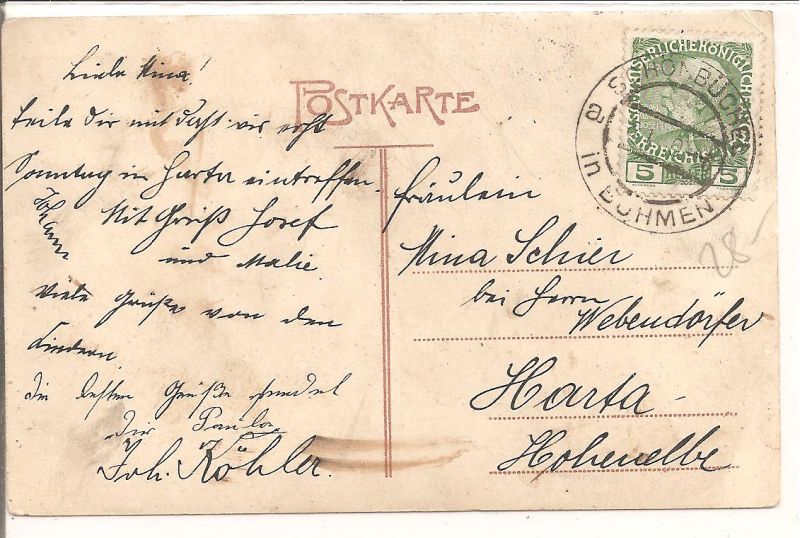 Liebe Mina!
teile Dir mit daß wir erst
Sonntag in Harta eintreffen.
Mit Gruß Josef
und Malie
Johann
Viele Grüße von den
Kindern
die besten Grüße sendet
Dir Paula
u
Joh. Köhler.
POSTKARTE
KAISERLICHE KÖNIGLICHE
ÖSTERREICH
5 5
SCHÖNBÜCHEL
a
in BÖHMEN
Fräulein
Mina Schier
bei Herrn
Webendörfer
Harta
Hohenelbe
28-